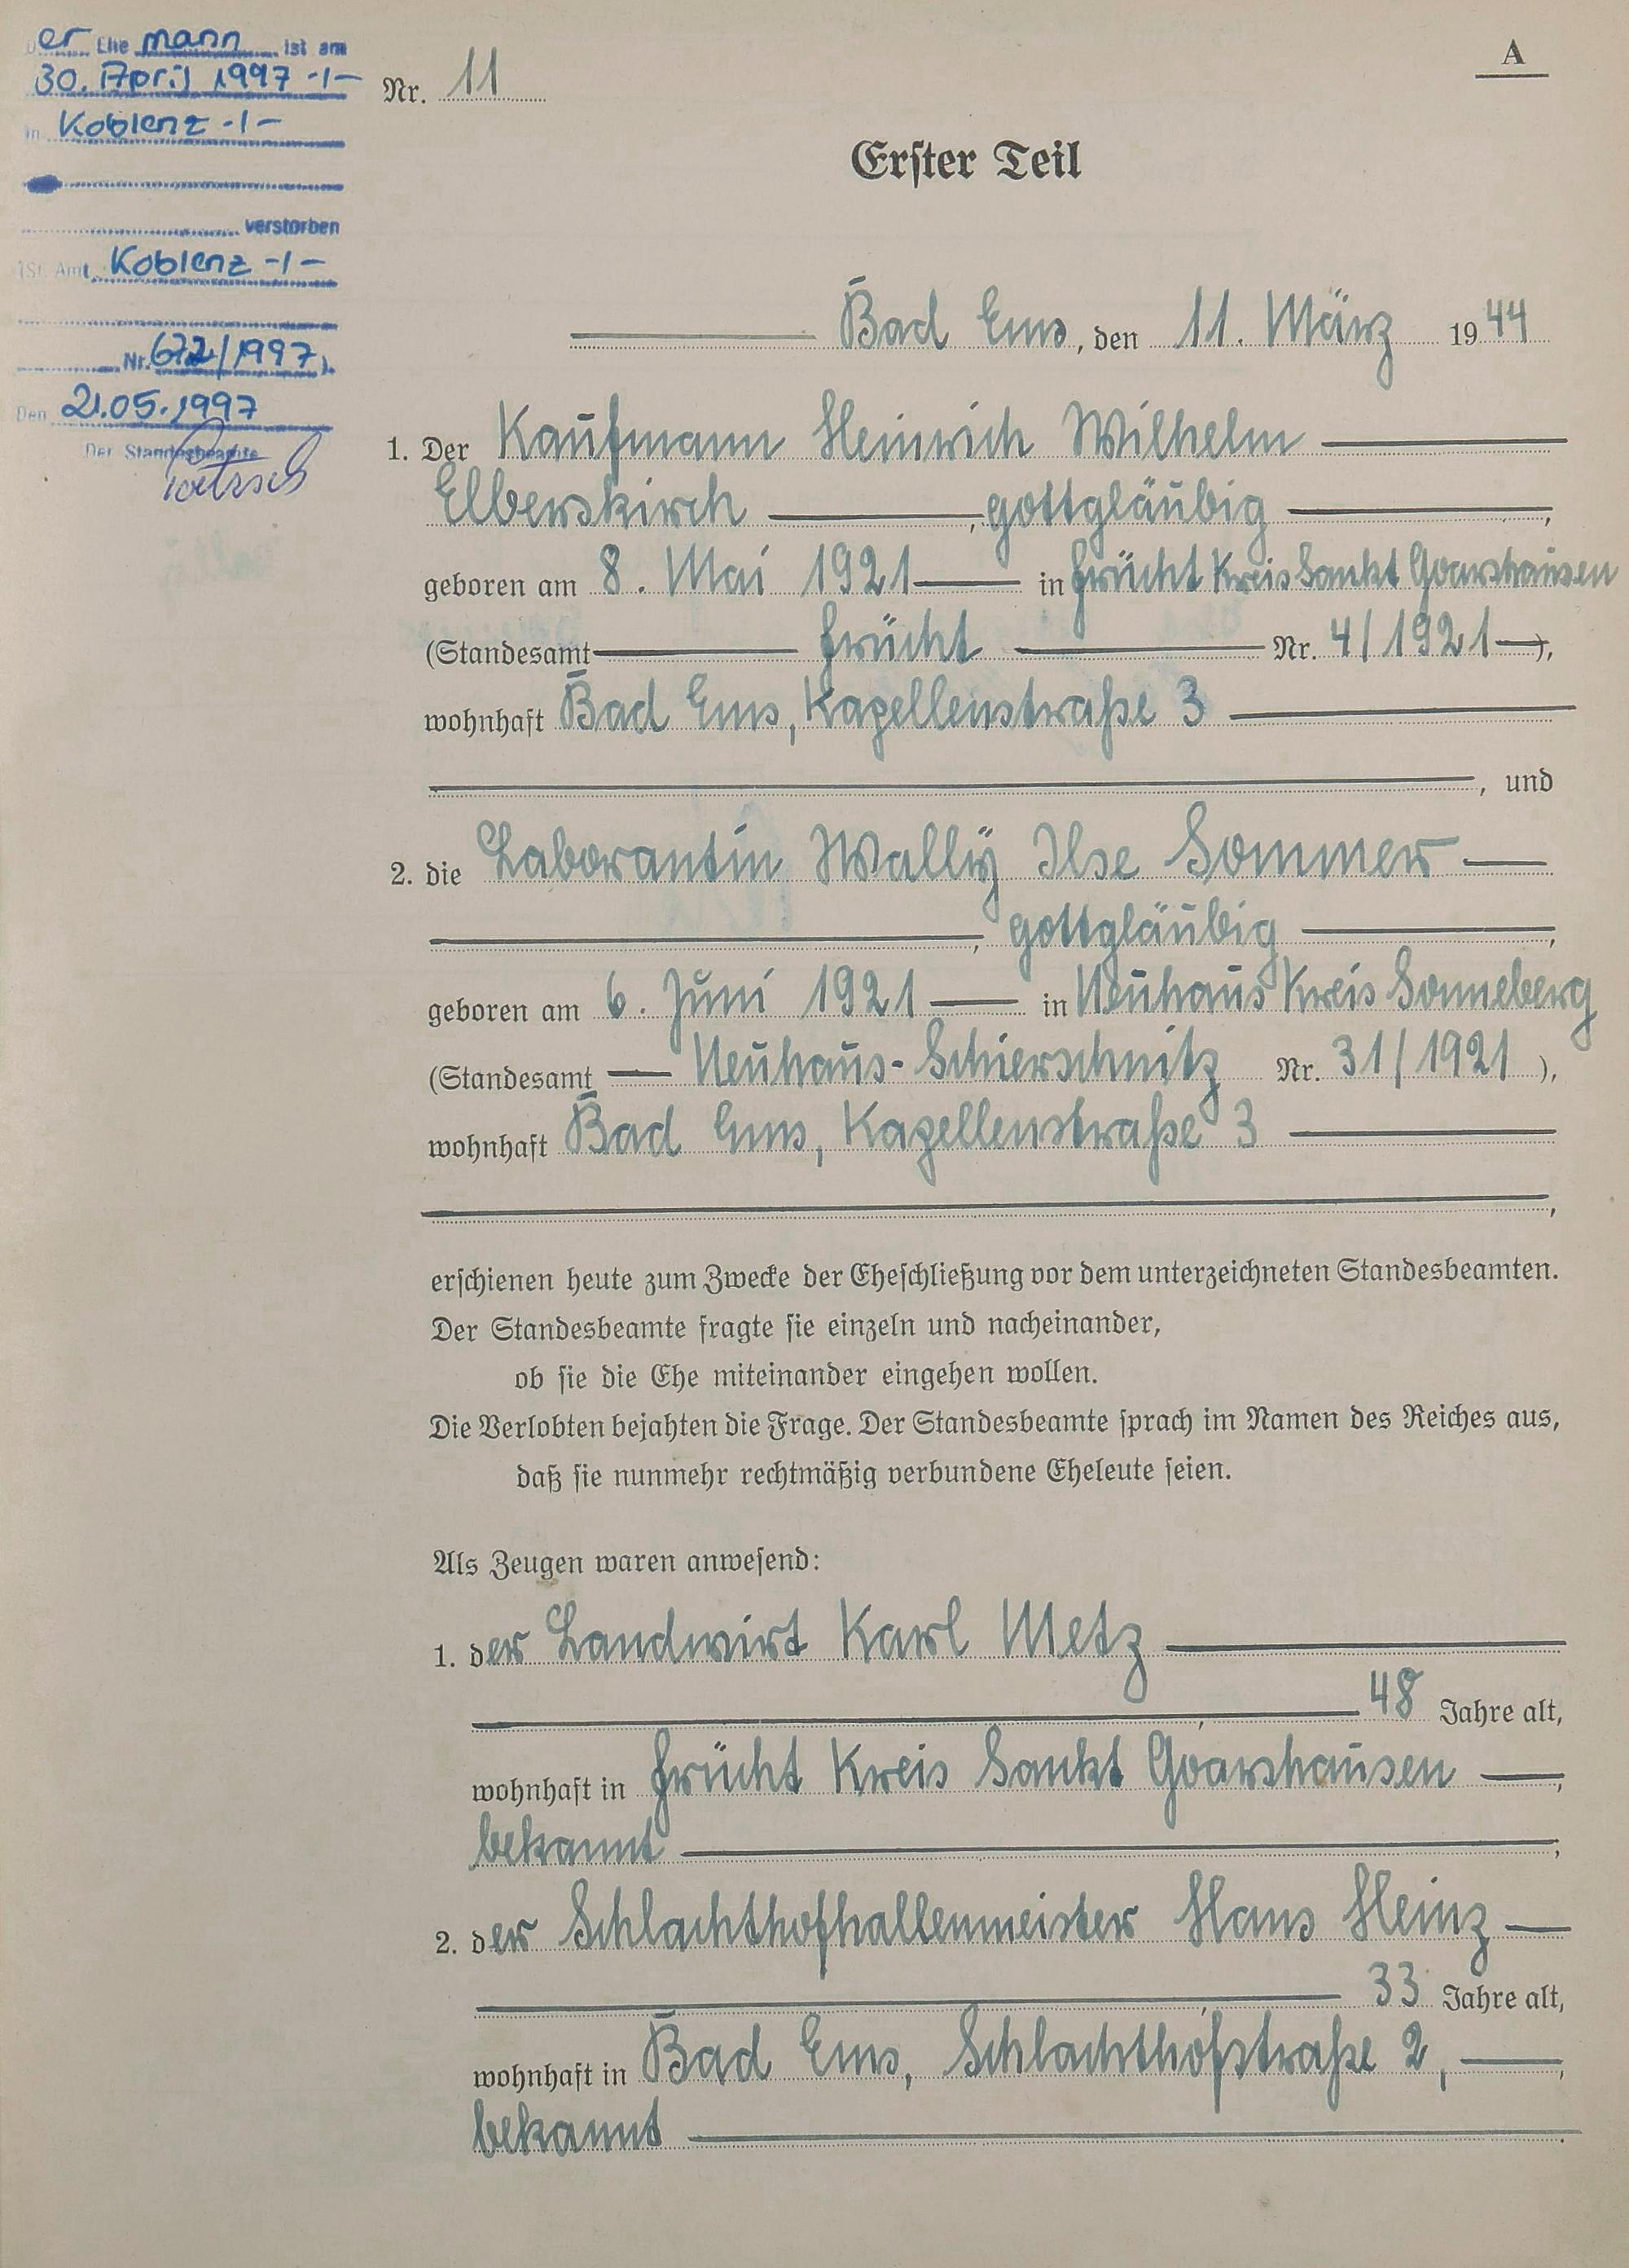 Der Ehe mann ist am
30. April 1997 -/-
in Koblenz -/-
verstorben
(St. Amt Koblenz -/-
Nr. 672/1997).
Den 21.05.1997
Der Standesbeamte
A
Nr. 11
Erster Teil
Bad Ems, den 11. März 1944
1. Der Kaufmann Heinrich Wilhelm
Elberskirch, gottgläubig,
geboren am 8. Mai 1921 in Frücht Kreis Sankt Goarshausen
(Standesamt Frücht Nr. 4/1921),
wohnhaft Bad Ems, Kapellenstraße 3
, und
2. die Laborantin Wally Ilse Sommer
, gottgläubig,
geboren am 6. Juni 1921 in Neuhaus Kreis Sonneberg
(Standesamt Neuhaus-Schierschnitz Nr. 31/1921),
wohnhaft Bad Ems, Kapellenstraße 3
,
erschienen heute zum Zwecke der Eheschließung vor dem unterzeichneten Standesbeamten.
Der Standesbeamte fragte sie einzeln und nacheinander,
ob sie die Ehe miteinander eingehen wollen.
Die Verlobten bejahten die Frage. Der Standesbeamte sprach im Namen des Reiches aus,
daß sie nunmehr rechtmäßig verbundene Eheleute seien.
Als Zeugen waren anwesend:
1. der Landwirt Karl Metz
48 Jahre alt,
wohnhaft in Frücht Kreis Sankt Goarshausen,
bekannt;
2. der Schlachthofhallenmeister Hans Heinz
33 Jahre alt,
wohnhaft in Bad Ems, Schlachthofstraße 2,
bekannt.